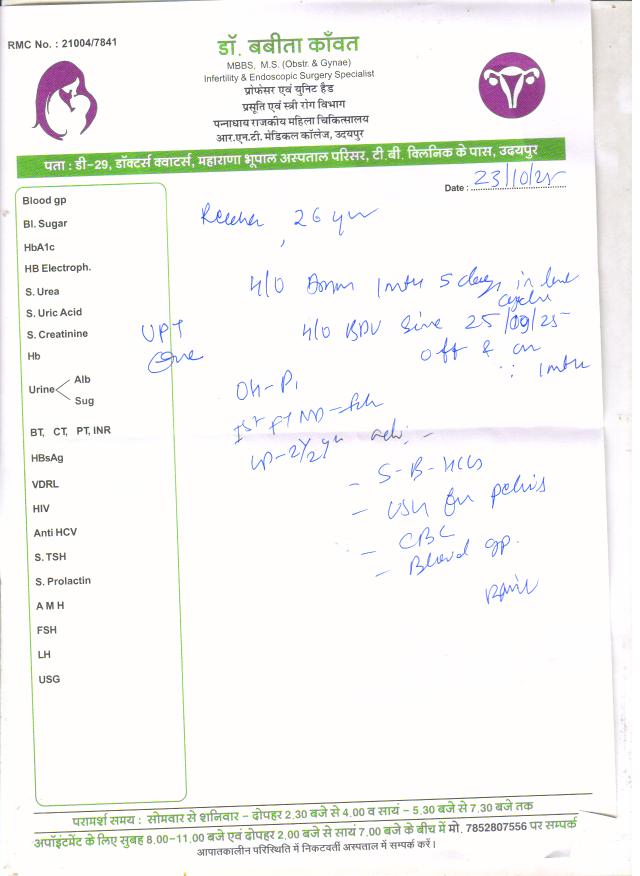 RMC No. : 21004/7841
डॉ. बबीता काँवत
MBBS, M.S. (Obstr. & Gynae)
Infertility & Endoscopic Surgery Specialist
प्रोफेसर एवं यूनिट हैड
प्रसूति एवं स्त्री रोग विभाग
पन्नाधाय राजकीय महिला चिकित्सालय
आर.एन.टी. मेडिकल कॉलेज, उदयपुर
पता : डी-29, डॉक्टर्स क्वाटर्स, महाराणा भूपाल अस्पताल परिसर, टी.बी. क्लिनिक के पास, उदयपुर
Date : 23/10/25
Blood gp
Bl. Sugar
HbA1c
HB Electroph.
S. Urea
S. Uric Acid
S. Creatinine
Hb
Urine Alb
Sug
BT, CT, PT, INR
HBsAg
VDRL
HIV
Anti HCV
S. TSH
S. Prolactin
A M H
FSH
LH
USG
26 yr
H/O 1 mth 5 days in
H/O BPV since 25/09/25
off & on
1 mth
UPT
OH - P1
Ist FT ND -
- S-B-HCG
- USG for pelvis
- CBC
- Blood gp.
परामर्श समय : सोमवार से शनिवार - दोपहर 2.30 बजे से 4.00 व सायं - 5.30 बजे से 7.30 बजे तक
अपॉइंटमेंट के लिए सुबह 8.00-11.00 बजे एवं दोपहर 2.00 बजे से सायं 7.00 बजे के बीच में मो. 7852807556 पर सम्पर्क
आपातकालीन परिस्थिति में निकटवर्ती अस्पताल में सम्पर्क करें।